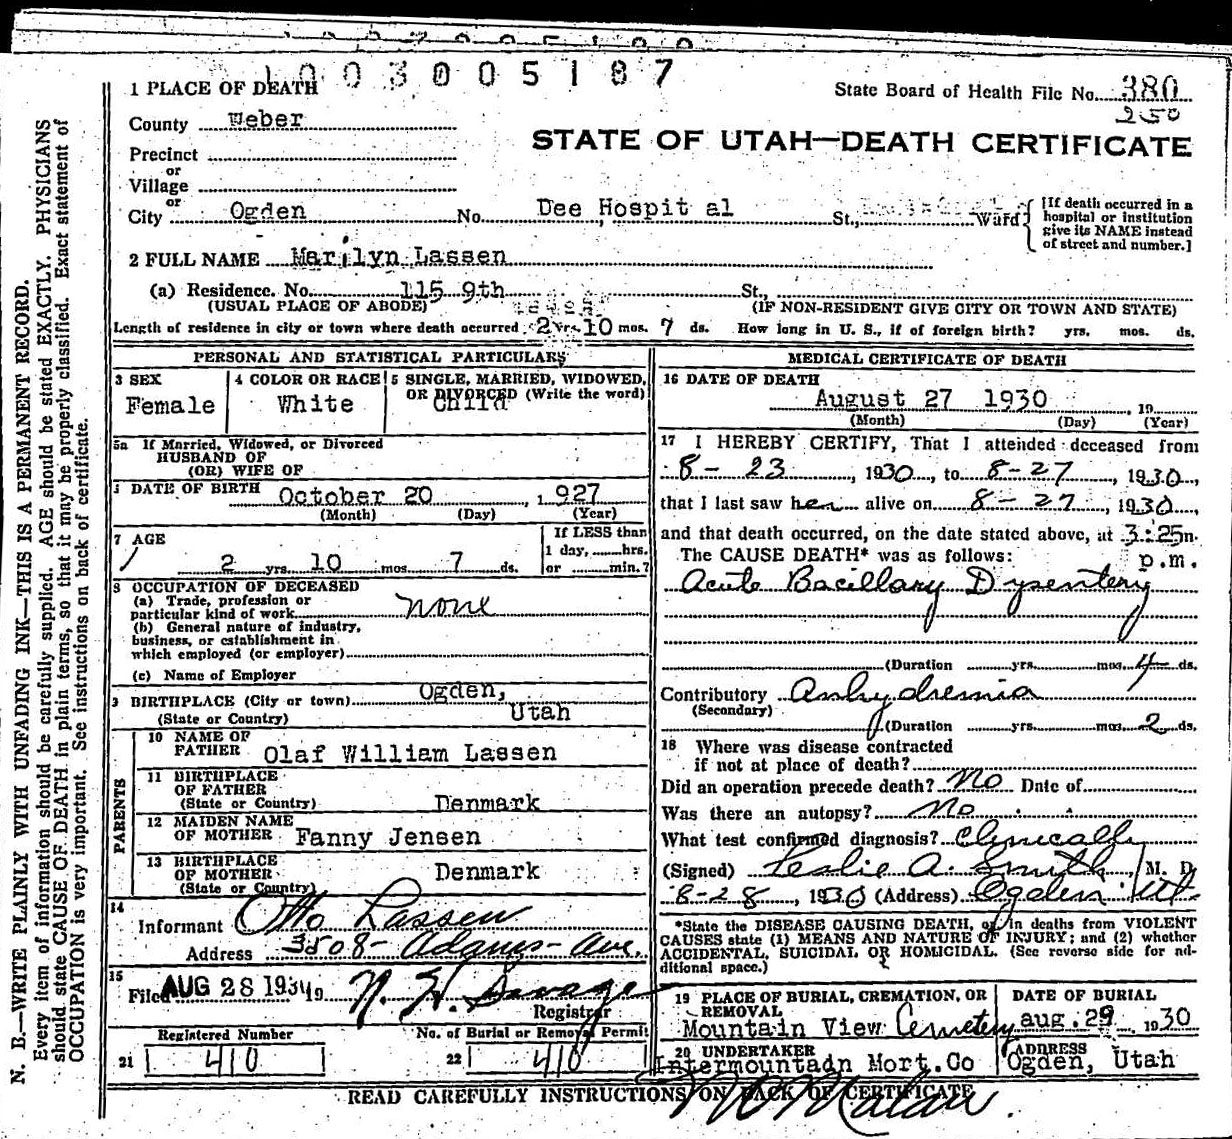 1003005187
1 PLACE OF DEATH
State Board of Health File No. 380
250
County Weber
STATE OF UTAH—DEATH CERTIFICATE
Precinct
or
Village
or
City Ogden No. Dee Hospit al St., Ward
[If death occurred in a
hospital or institution
give its NAME instead
of street and number.]
2 FULL NAME Marilyn Lassen
(a) Residence. No. 115 9th St.,
(USUAL PLACE OF ABODE) (IF NON-RESIDENT GIVE CITY OR TOWN AND STATE)
Length of residence in city or town where death occurred 2 yrs. 10 mos. 7 ds. How long in U. S., if of foreign birth? yrs. mos. ds.
PERSONAL AND STATISTICAL PARTICULARS
3 SEX
Female
4 COLOR OR RACE
White
5 SINGLE, MARRIED, WIDOWED,
OR DIVORCED (Write the word)
Child
5a If Married, Widowed, or Divorced
HUSBAND OF
(OR) WIFE OF
DATE OF BIRTH October 20 1 927
(Month) (Day) (Year)
7 AGE
2 yrs. 10 mos. 7 ds.
If LESS than
1 day, hrs.
or min.?
8 OCCUPATION OF DECEASED
(a) Trade, profession or
particular kind of work none
(b) General nature of industry,
business, or establishment in
which employed (or employer)
(c) Name of Employer
9 BIRTHPLACE (City or town) Ogden,
(State or Country) Utah
PARENTS
10 NAME OF
FATHER Olaf William Lassen
11 BIRTHPLACE
OF FATHER
(State or Country) Denmark
12 MAIDEN NAME
OF MOTHER Fanny Jensen
13 BIRTHPLACE
OF MOTHER
(State or Country) Denmark
14
Informant Otto Lassen
Address 3508- Adams- Ave.
15
Filed AUG 28 1930 19 N. H. Savage
Registrar
Registered Number
21 410
No. of Burial or Removal Permit
22 410
MEDICAL CERTIFICATE OF DEATH
16 DATE OF DEATH
August 27 1930 , 19
(Month) (Day) (Year)
17 I HEREBY CERTIFY, That I attended deceased from
8- 23 , 1930, to 8-27 , 1930,
that I last saw her alive on 8-27 , 1930,
and that death occurred, on the date stated above, at 3:25 m.
The CAUSE DEATH* was as follows: p.m.
Acute Bacillary Dysentery
(Duration yrs. mos. 4 ds.
Contributory Anhydremia
(Secondary)
(Duration yrs. mos. 2 ds.
18 Where was disease contracted
if not at place of death?
Did an operation precede death? No Date of
Was there an autopsy? No
What test confirmed diagnosis? Clinically
(Signed) Leslie A. Smith, M. D.
8-28, 1930 (Address) Ogden Ut
*State the DISEASE CAUSING DEATH, or in deaths from VIOLENT
CAUSES state (1) MEANS AND NATURE OF INJURY; and (2) whether
ACCIDENTAL, SUICIDAL OR HOMICIDAL. (See reverse side for ad-
ditional space.)
19 PLACE OF BURIAL, CREMATION, OR
REMOVAL
Mountain View Cemetery
DATE OF BURIAL
aug. 29 1930
20 UNDERTAKER
Intermountain Mort. Co
ADDRESS
Ogden, Utah
READ CAREFULLY INSTRUCTIONS ON BACK OF CERTIFICATE
N. B.—WRITE PLAINLY WITH UNFADING INK—THIS IS A PERMANENT RECORD.
Every item of information should be carefully supplied. AGE should be stated EXACTLY. PHYSICIANS
should state CAUSE OF DEATH in plain terms, so that it may be properly classified. Exact statement of
OCCUPATION is very important. See instructions on back of certificate.